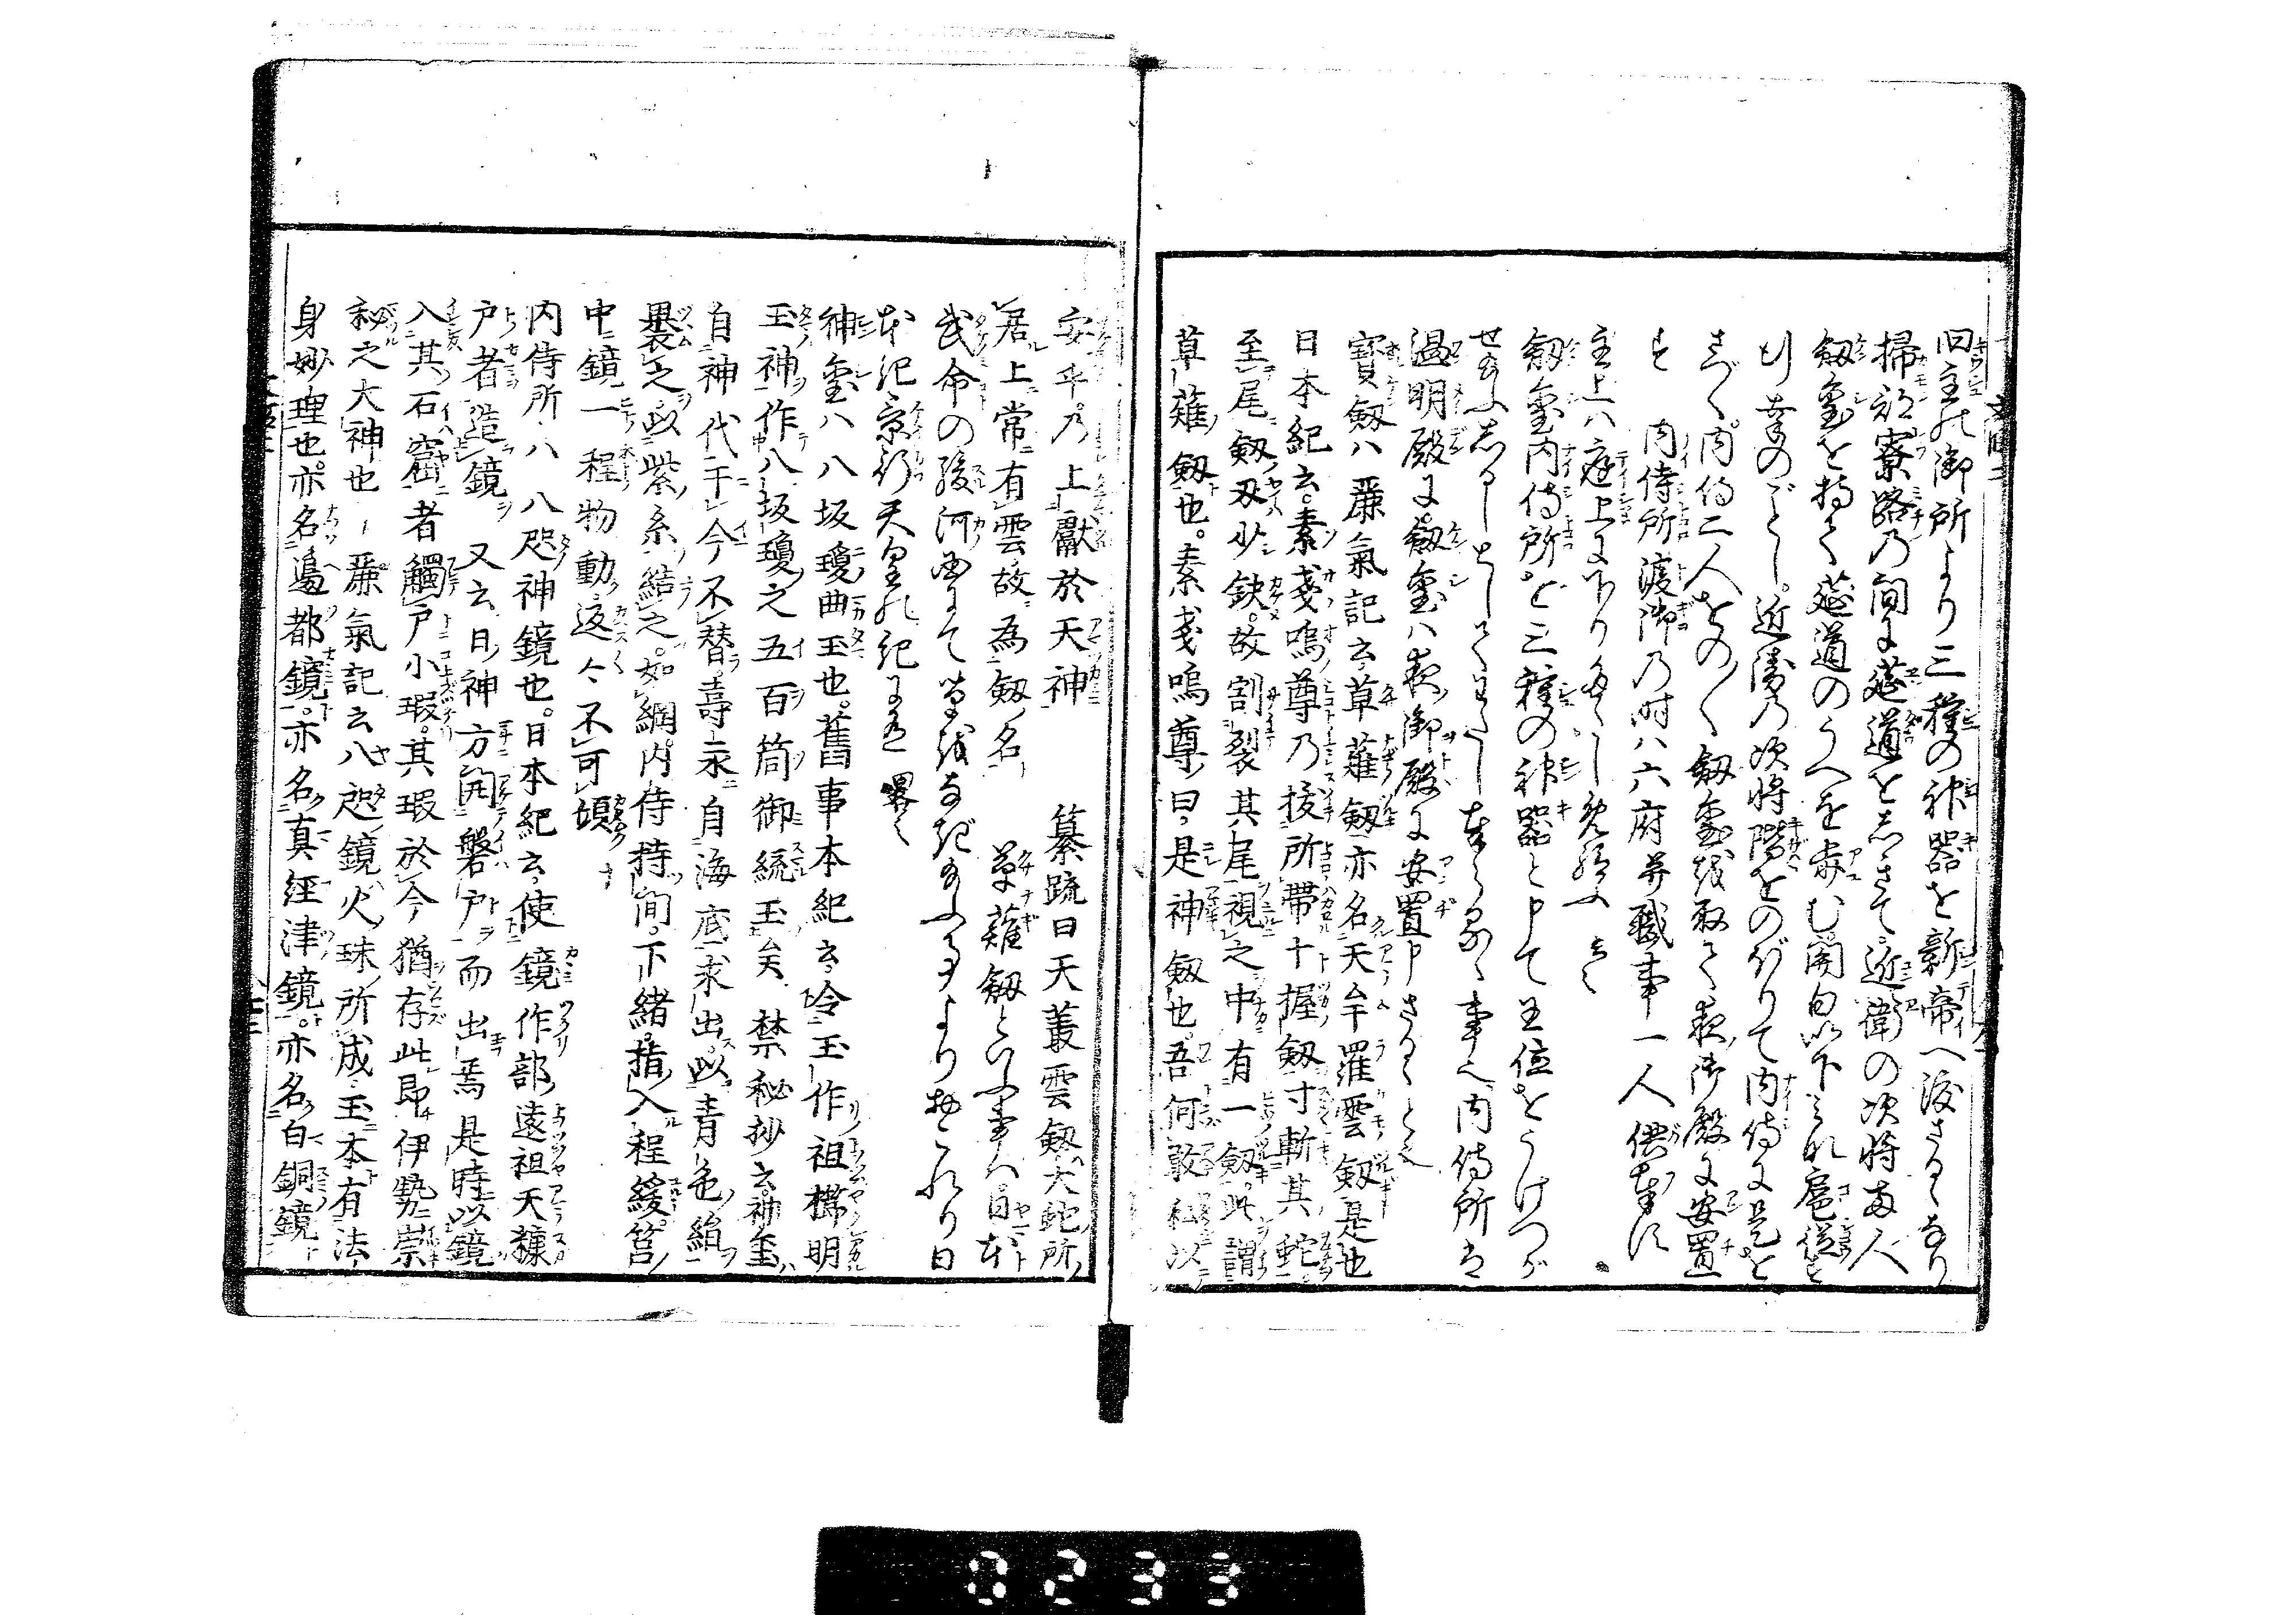 旧主の御所より三種の神器を新帝へ渡さるゝなり
掃部寮路の間に莚道をしきて近衛の次将両人
剱璽を持て莚道のうへを歩む関白以下これに扈従す
行幸のごとし近衛の次将階をのぼりて内侍に是を
さづく内侍二人をの〳〵剱璽を取て夜御殿に安置
す 内侍所渡御の時ハ六府并職事一人供奉す
主上ハ庭上に下り
剱璽内侍所を三種の神器と申て王位をうけつが
せ給ふしるしとし 事也内侍所は
温明殿に剱璽ハ夜御殿に安置申さるゝと也
寶剱ハ麗氣記云草薙剱亦名天牟羅雲剱是也
日本紀云素戔嗚尊乃抜所帯十握剱寸斬其蛇
至尾剱刃少缺故割裂其尾視之中有一剱此謂
草薙剱也素戔嗚尊曰是神剱也吾何敢私以
安乎乃上獻於天神 纂疏曰天叢雲剱大蛇所
居上常有雲故為剱名 草薙剱といふ事ハ日本
武命の駿河西にて草をなぎ給ふ事よりおこれり日
本紀景行天皇の紀に有 畧之
神璽ハ八坂瓊曲玉也舊事本紀云令玉作祖櫛明
玉神作八坂瓊之五百筒御統玉矣 禁秘抄云神璽
自神代于今不替壽永自海底求出以青色絹
裹之以紫糸結之如網内侍持間下緒指入程緩筥
中鏡一程物動返々不可傾
内侍所ハ八咫神鏡也日本紀云使鏡作部遠祖天糠
戸者造鏡 又云日神方開磐戸而出焉是時以鏡
入其石窟者觸戸小瑕其瑕於今猶存此即伊勢崇
秘之大神也 麗氣記云八咫鏡火珠所成玉本有法
身妙理也亦名邊都鏡亦名真経津鏡亦名白銅鏡
0233